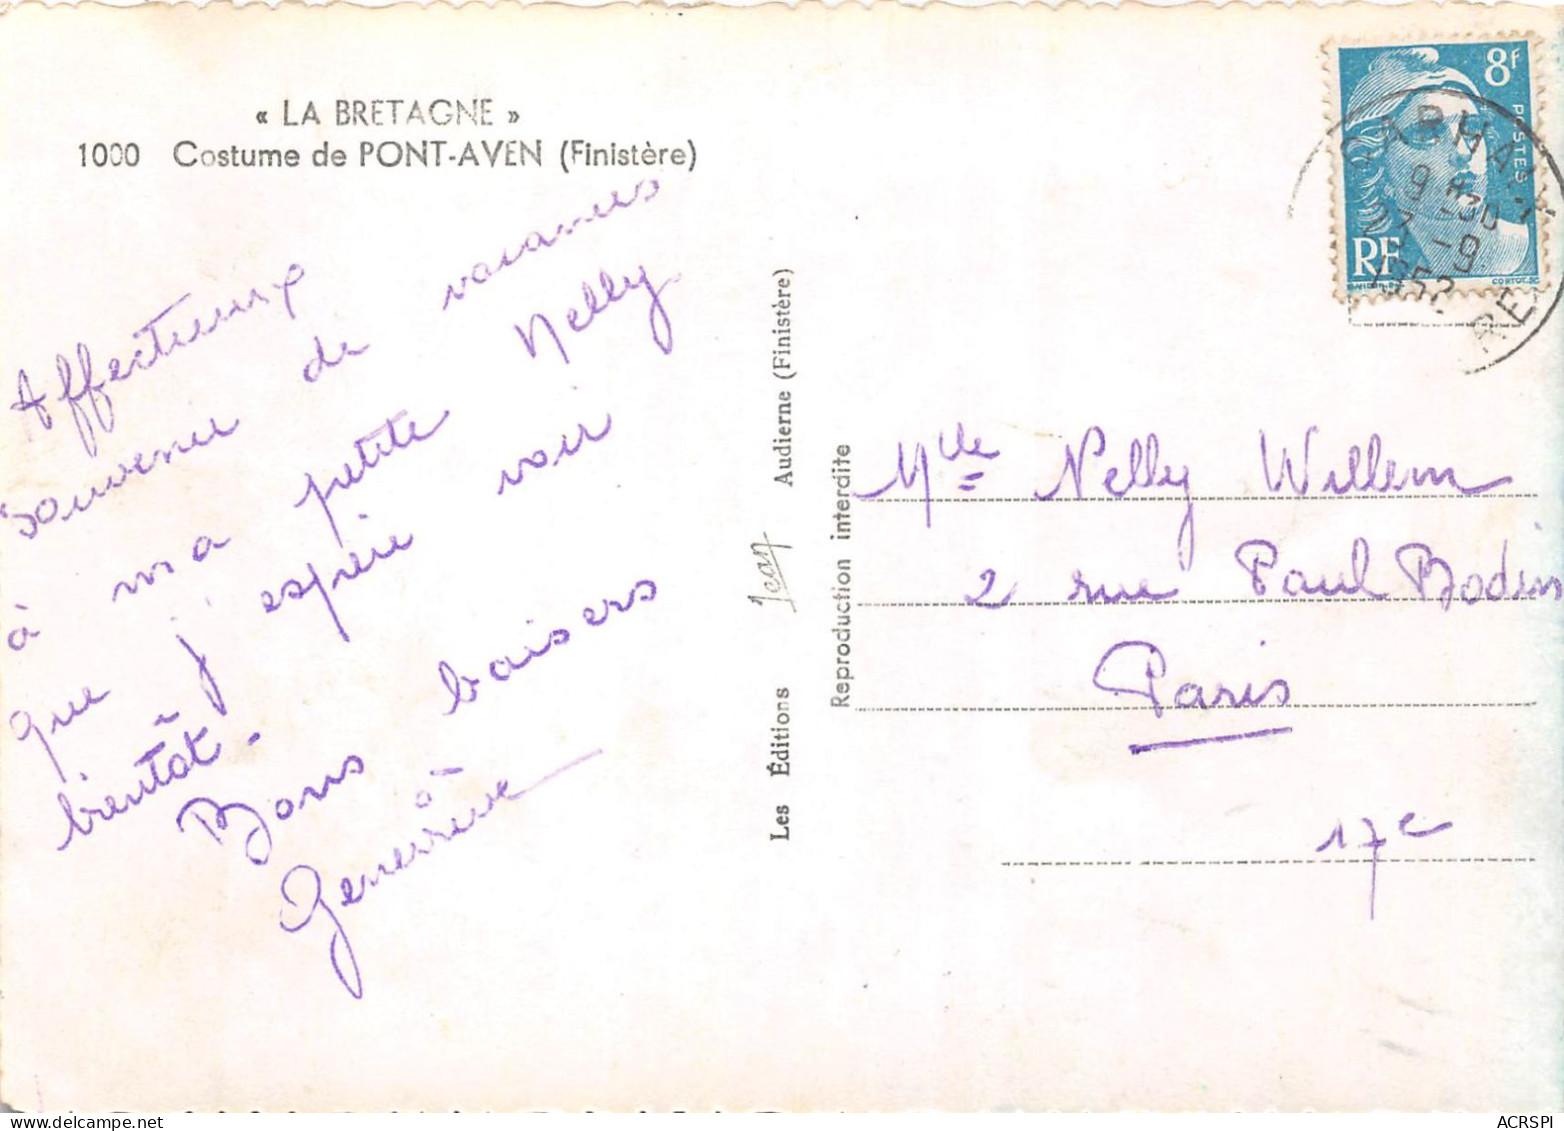 « LA BRETAGNE »
1000 Costume de PONT-AVEN (Finistère)
Affectueux
souvenir de vacances
à ma petite Nelly
que j'espère voir
bientôt.
Bons baisers
Geneviève
Les Éditions Jean Audierne (Finistère)
Reproduction interdite
8f
POSTES
RF
CORTOT.SC
CARHAIX
9 H 30
23 -9
1952
RE
Mlle Nelly Willem
2 rue Paul Bodin
Paris
17e
ACRSPI